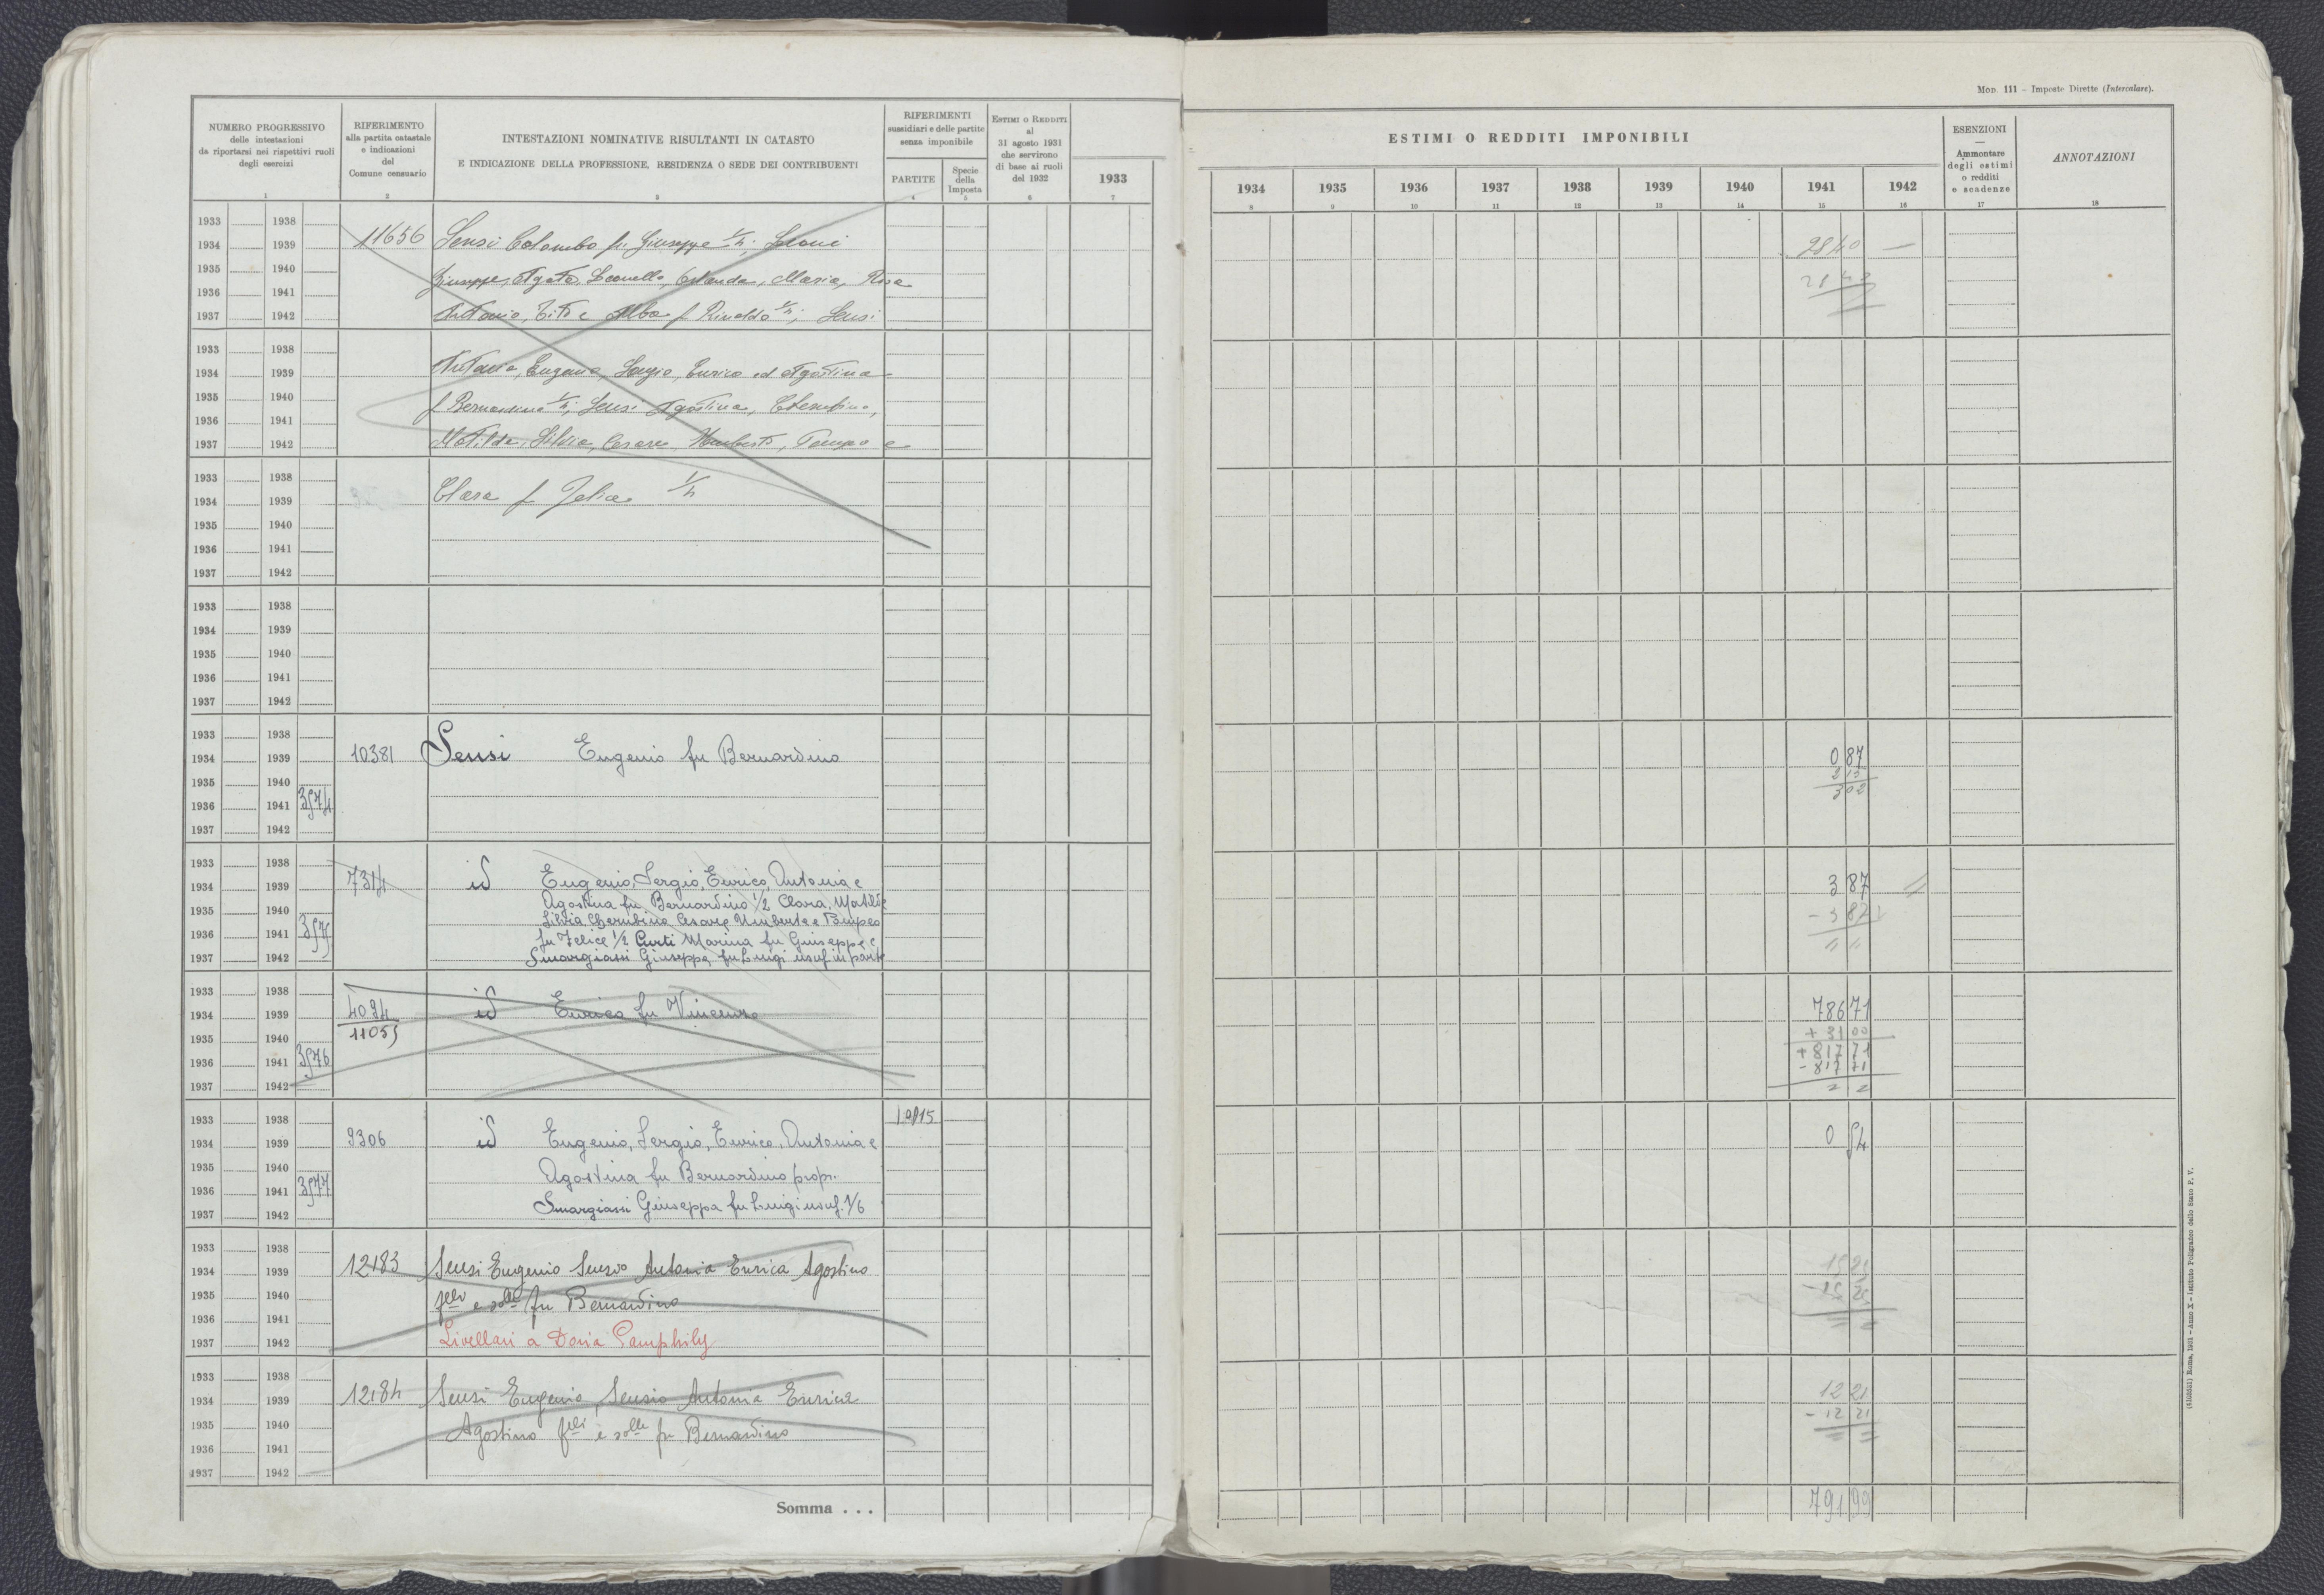 Mod. 111 – Imposte Dirette (Intercalare).
NUMERO PROGRESSIVO
delle intestazioni
da riportarsi nei rispettivi ruoli
degli esercizi
1
RIFERIMENTO
alla partita catastale
e indicazioni
del
Comune censuario
2
INTESTAZIONI NOMINATIVE RISULTANTI IN CATASTO
E INDICAZIONE DELLA PROFESSIONE, RESIDENZA O SEDE DEI CONTRIBUENTI
3
RIFERIMENTI
sussidiari e delle partite
senza imponibile
PARTITE
4
Specie
della
Imposta
5
Estimi o Redditi
al
31 agosto 1931
che servirono
di base ai ruoli
del 1932
6
1933
7
ESTIMI O REDDITI IMPONIBILI
1934 1935 1936 1937 1938 1939 1940 1941 1942
8 9 10 11 12 13 14 15 16
ESENZIONI
—
Ammontare
degli estimi
o redditi
e scadenze
17
ANNOTAZIONI
18
1933 1938
1934 1939 11656 Sensi Colombo fu Giuseppe 1/4; Leoni 2840 —
1935 1940 Giuseppe, Agata, Leonello, Orlanda, Maria, Rosa
1936 1941
1937 1942 Antonio, Tito e Alba f Rinaldo 1/4; Sensi
1933 1938
1934 1939 Antonia, Eugenio, Sergio, Enrico ed Agostina
1935 1940 f Bernardino 1/4; Sensi Agostina, Cherubino,
1936 1941
1937 1942 Matilde, Silvia, Cesare, Umberto, Pompeo e
1933 1938
1934 1939 Clara f Felice 1/4
1935 1940
1936 1941
1937 1942
1933 1938
1934 1939
1935 1940
1936 1941
1937 1942
1933 1938
1934 1939 10381 Sensi Eugenio fu Bernardino 0 87
1935 1940 2 15
1936 1941 3574 3 02
1937 1942
1933 1938
1934 1939 7314 id Eugenio, Sergio, Enrico, Antonia e 3 87
1935 1940 Agostina fu Bernardino 1/2 Clara, Matilde
Silvia Cherubino Cesare Umberto e Pompeo - 3 87
1936 1941 3575 fu Felice 1/2 Curti Marina fu Giuseppe e
1937 1942 Smargiassi Giuseppa fu Luigi usuf in parte
1933 1938
1934 1939 4094 id Enrico fu Vincenzo 786 71
1935 1940 11055 + 31 00
1936 1941 3576 + 817 71
- 817 71
1937 1942
1933 1938 10815
1934 1939 9306 id Eugenio, Sergio, Enrico, Antonia e 0 54
1935 1940 Agostina fu Bernardino propr.
1936 1941 3577
1937 1942 Smargiassi Giuseppa fu Luigi usuf. 1/6
1933 1938
1934 1939 12183 Sensi Eugenio Sensio Antonia Enrica Agostino 15 25
1935 1940 flli e slle fu Bernardino - 15 25
1936 1941
1937 1942 Livellari a Doria Pamphily
1933 1938
1934 1939 12184 Sensi Eugenio Sensio Antonia Enrica 12 21
1935 1940 Agostino flli e slle fu Bernardino - 12 21
1936 1941
1937 1942
Somma . . . 791 99
(8106551) Roma, 1931 – Anno X – Istituto Poligrafico dello Stato P. V.